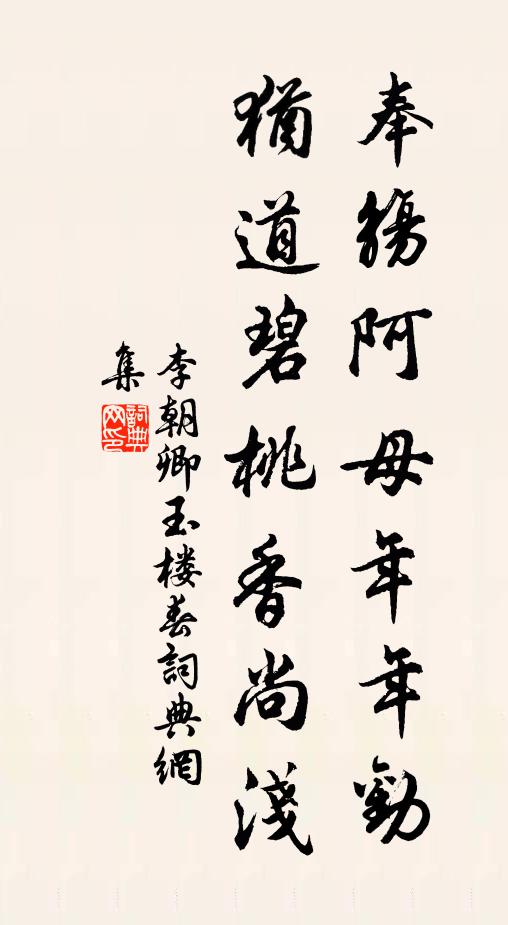 奉觴阿母年年勸
猶道碧桃香尚淺
李朝卿玉楼春詞典網
集
詞典网印